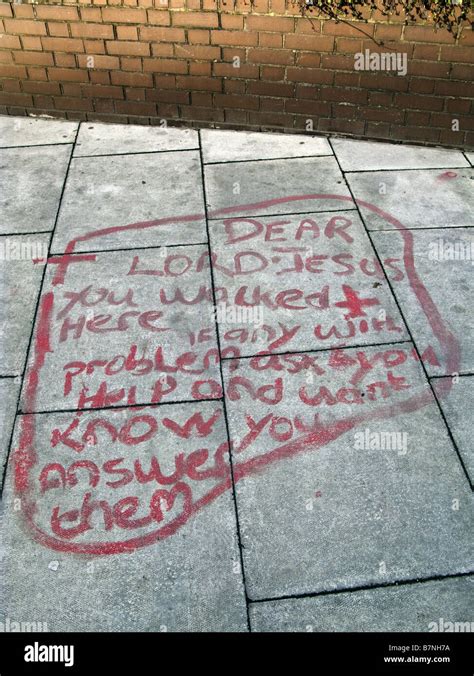 DEAR
+ LORD. JESUS
You walked +
Here if any with
problem ask you
Help and want
know you
answer
them
alamy
Image ID: B7NH7A
www.alamy.com